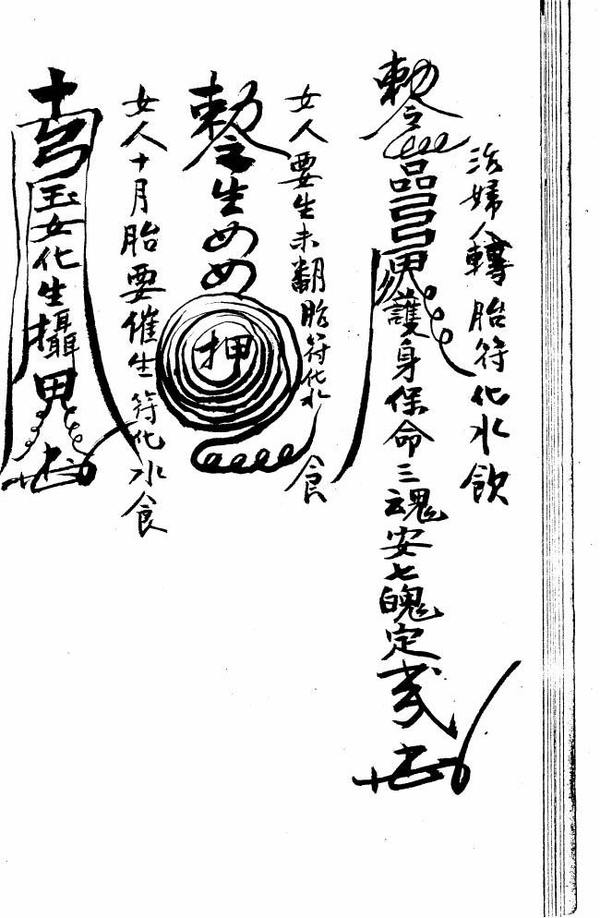 治婦人轉胎符化水飲
勅令品弓弓護身保命三魂安七魄定
女人要生未翻胎符化水食
勅令生め め押
女人十月胎要催生符化水食
玉女化生攝